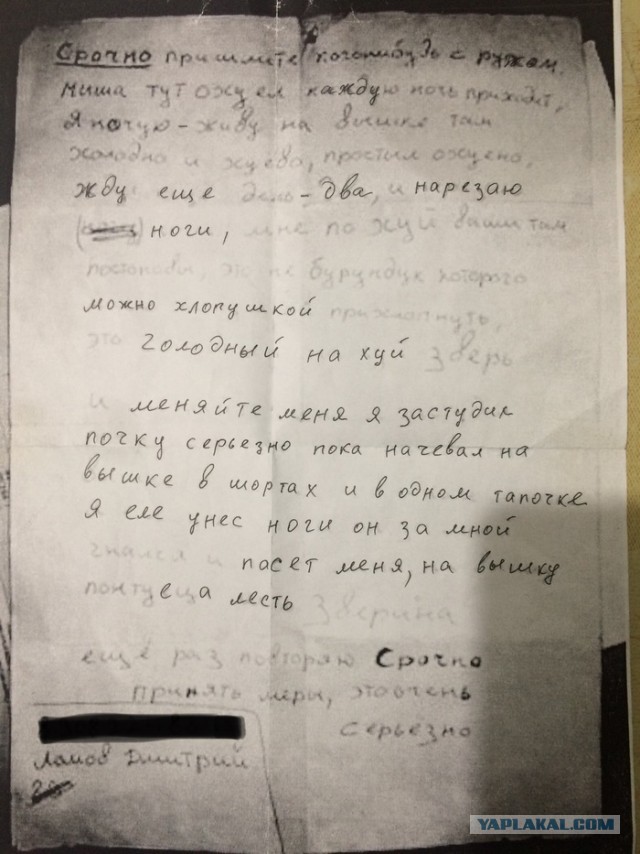 Срочно пришлите когонибудь с ружом.
Миша тут охуел каждую ночь приходит,
Я ночую - живу на вышке там
холодно и хуёво, простыл охуено,
жду еще день - два, и нарезаю
ноги, мне по хуй ваши там
постановы, это не бурундук которого
можно хлопушкой прихлопнуть,
это голодный на хуй зверь
и меняйте меня я застудил
почку серьезно пока начевал на
вышке в шортах и в одном тапочке
Я еле унес ноги он за мной
гнался и пасет меня, на вышку
понтуеца лесть зверина
ещё раз повторяю Срочно
принять меры, это очень
серьезно
Ламов Дмитрий
YAPLAKAL.COM